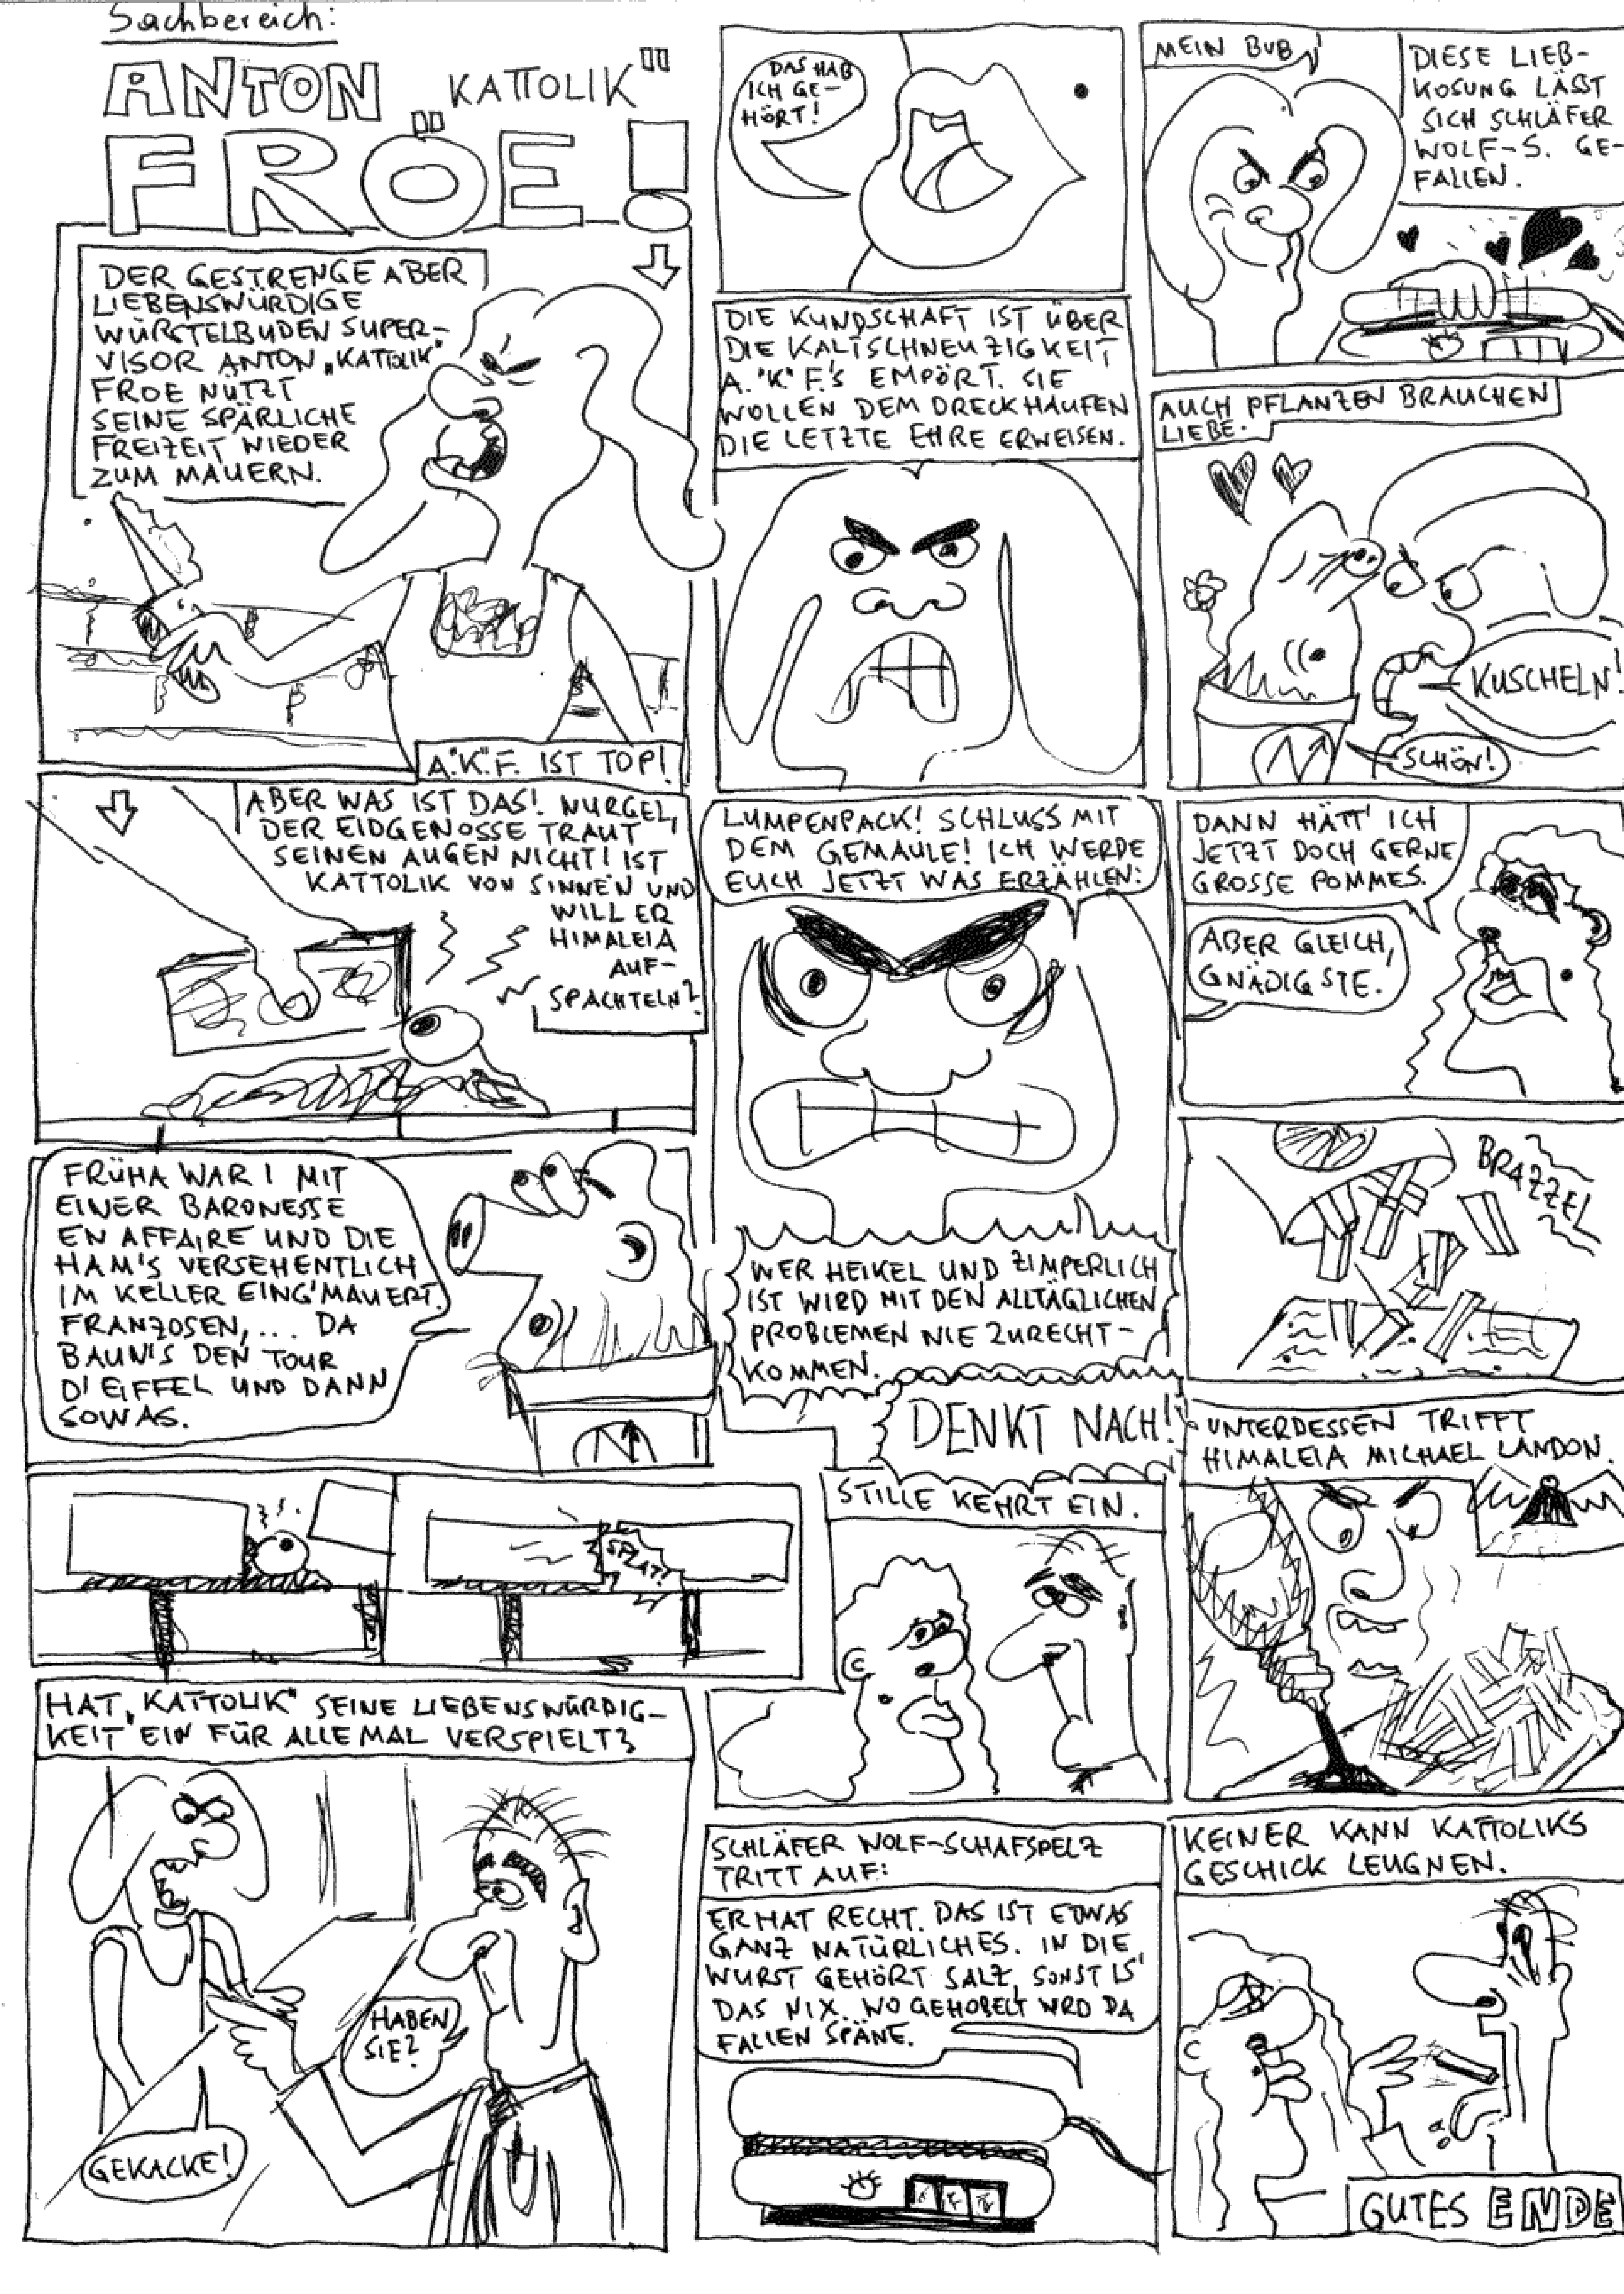 Sachbereich:
ANTON „KATTOLIK"
FRÖE!
DER GESTRENGE ABER
LIEBENSWÜRDIGE
WÜRSTELBUDEN SUPER-
VISOR ANTON „KATTOLIK"
FROE NÜTZT
SEINE SPÄRLICHE
FREIZEIT WIEDER
ZUM MAUERN.
A."K".F. IST TOP!
ABER WAS IST DAS! NURGEL,
DER EIDGENOSSE TRAUT
SEINEN AUGEN NICHT! IST
KATTOLIK VON SINNEN UND
WILL ER
HIMALEIA
AUF-
SPACHTELN?
FRÜHA WAR I MIT
EINER BARONESSE
EN AFFAIRE UND DIE
HAM'S VERSEHENTLICH
IM KELLER EING'MAUERT.
FRANZOSEN,... DA
BAUN'S DEN TOUR
D'EIFFEL UND DANN
SOWAS.
SPLAT!
HAT „KATTOLIK" SEINE LIEBENSWÜRDIG-
KEIT EIN FÜR ALLE MAL VERSPIELT?
HABEN
SIE?
GEKACKE!
DAS HAB
ICH GE-
HÖRT!
DIE KUNDSCHAFT IST ÜBER
DIE KALTSCHNEUZIGKEIT
A."K" F.'s EMPÖRT. SIE
WOLLEN DEM DRECKHAUFEN
DIE LETZTE EHRE ERWEISEN.
LUMPENPACK! SCHLUSS MIT
DEM GEMAULE! ICH WERDE
EUCH JETZT WAS ERZÄHLEN:
WER HEIKEL UND ZIMPERLICH
IST WIRD MIT DEN ALLTÄGLICHEN
PROBLEMEN NIE ZURECHT-
KOMMEN.
DENKT NACH!
STILLE KEHRT EIN.
SCHLÄFER WOLF-SCHAFSPELZ
TRITT AUF:
ER HAT RECHT. DAS IST ETWAS
GANZ NATÜRLICHES. IN DIE
WURST GEHÖRT SALZ, SONST IS'
DAS NIX. WO GEHOBELT WIRD DA
FALLEN SPÄNE.
MEIN BUB
DIESE LIEB-
KOSUNG LÄSST
SICH SCHLÄFER
WOLF-S. GE-
FALLEN.
AUCH PFLANZEN BRAUCHEN
LIEBE.
KUSCHELN!
SCHÖN!
DANN HÄTT' ICH
JETZT DOCH GERNE
GROSSE POMMES.
ABER GLEICH,
GNÄDIGSTE.
BRAZZEL
UNTERDESSEN TRIFFT
HIMALEIA MICHAEL LANDON.
KEINER KANN KATTOLIKS
GESCHICK LEUGNEN.
GUTES ENDE